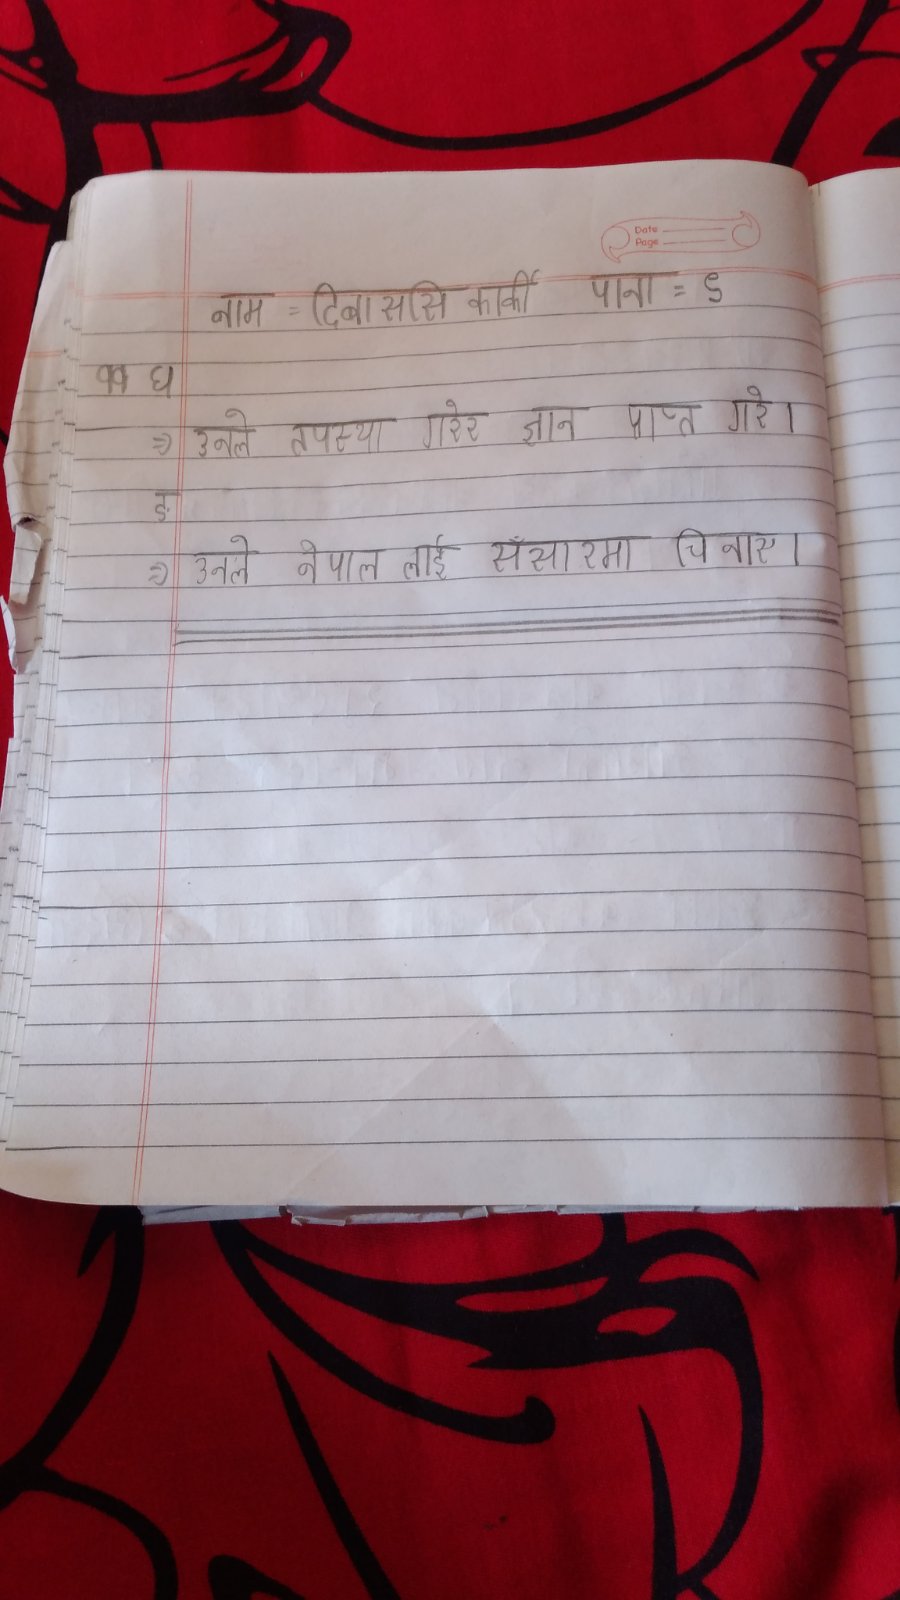 Date
Page
नाम = दिबाससि कार्की पाना = ९
११ घ
⇒ उनले तपस्या गरेर ज्ञान प्राप्त गरे।
ङ
⇒ उनले नेपाल लाई सँसारमा चिनाए।